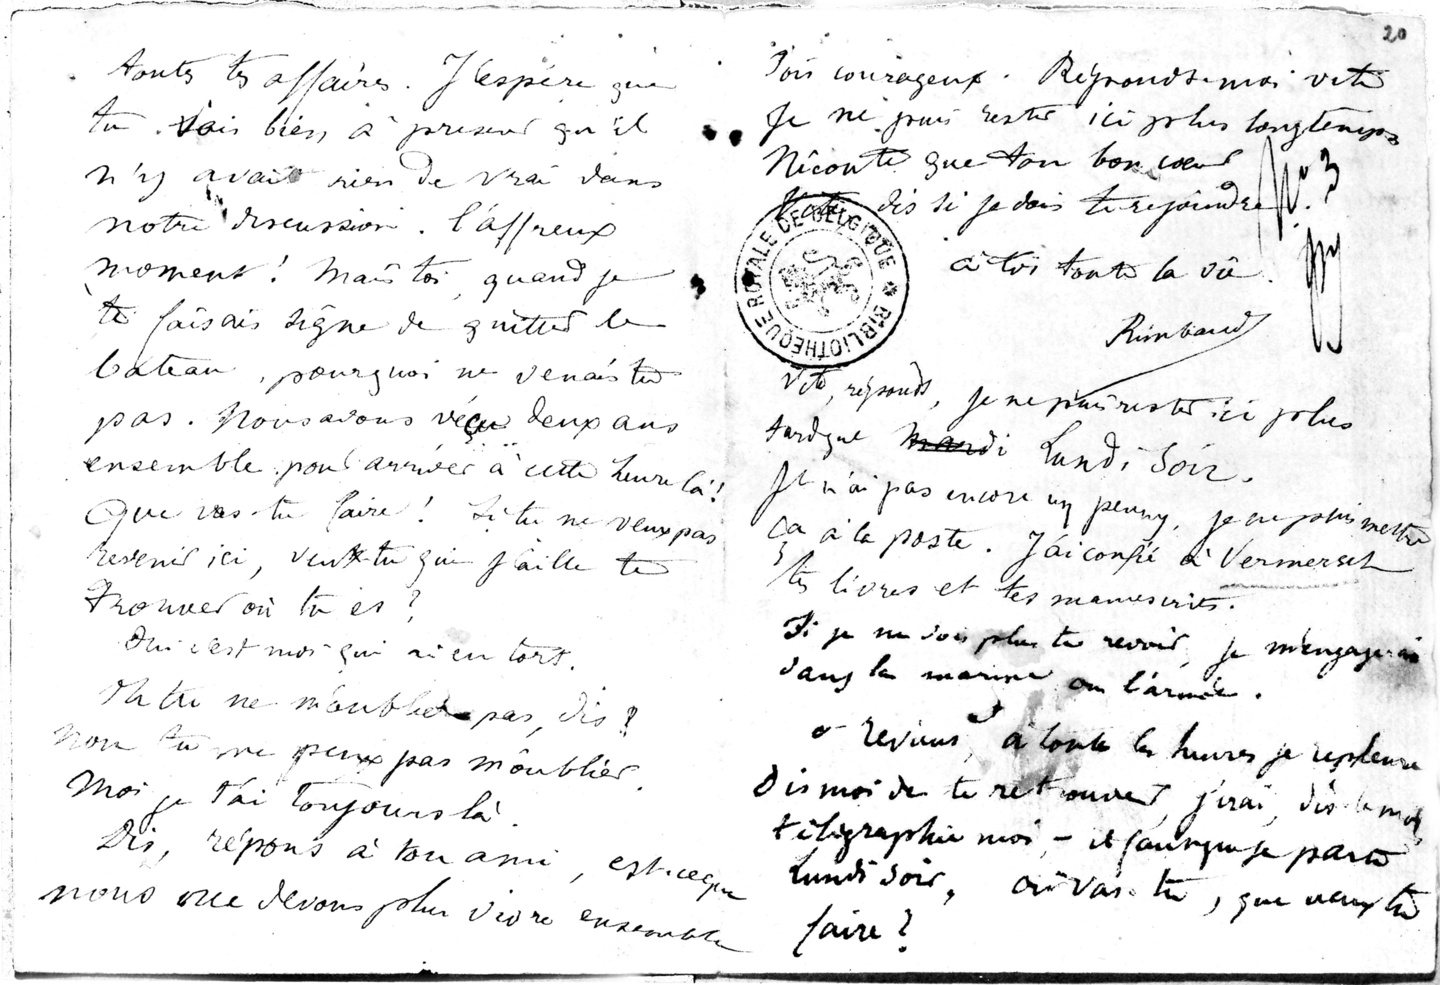 toutes tes affaires. J'espère que
tu vois bien à présent qu'il
n'y avait rien de vrai dans
notre discussion. l'affreux
moment ! Mais toi, quand je
te faisais signe de quitter le
bateau, pourquoi ne venais tu
pas. Nous avons vécu deux ans
ensemble pour arriver à cette heure là !
Que vas-tu faire ! Si tu ne veux pas
revenir ici, veux-tu que j'aille te
trouver où tu es ?
Oui c'est moi qui ai eu tort.
Oh tu ne m'oublieras pas, dis ?
Non tu ne peux pas m'oublier.
Moi je t'ai toujours là.
Dis, réponds à ton ami, est ce que
nous ne devons plus vivre ensemble
20
Sois courageux. Réponds-moi vite
Je ne puis rester ici plus longtemps
N'écoute que ton bon cœur
Vite, dis si je dois te rejoindre.
N° 3
à toi toute la vie.
Rimbaud
BIBLIOTHÈQUE ROYALE DE BELGIQUE
Vite, réponds, je ne puis rester ici plus
tard que mardi Lundi soir.
Je n'ai pas encore un penny, je ne puis mettre
ça à la poste. J'ai confié à Vermersch
tes livres et tes manuscrits.
Si je ne dois plus te revoir, je m'engagerai
dans la marine ou l'armée.
o reviens, à toutes les heures je repleure
Dis moi de te retrouver, j'irai, dis-le moi,
télégraphie moi, – il faut que je parte
lundi soir, où vas-tu, que veux tu
faire ?